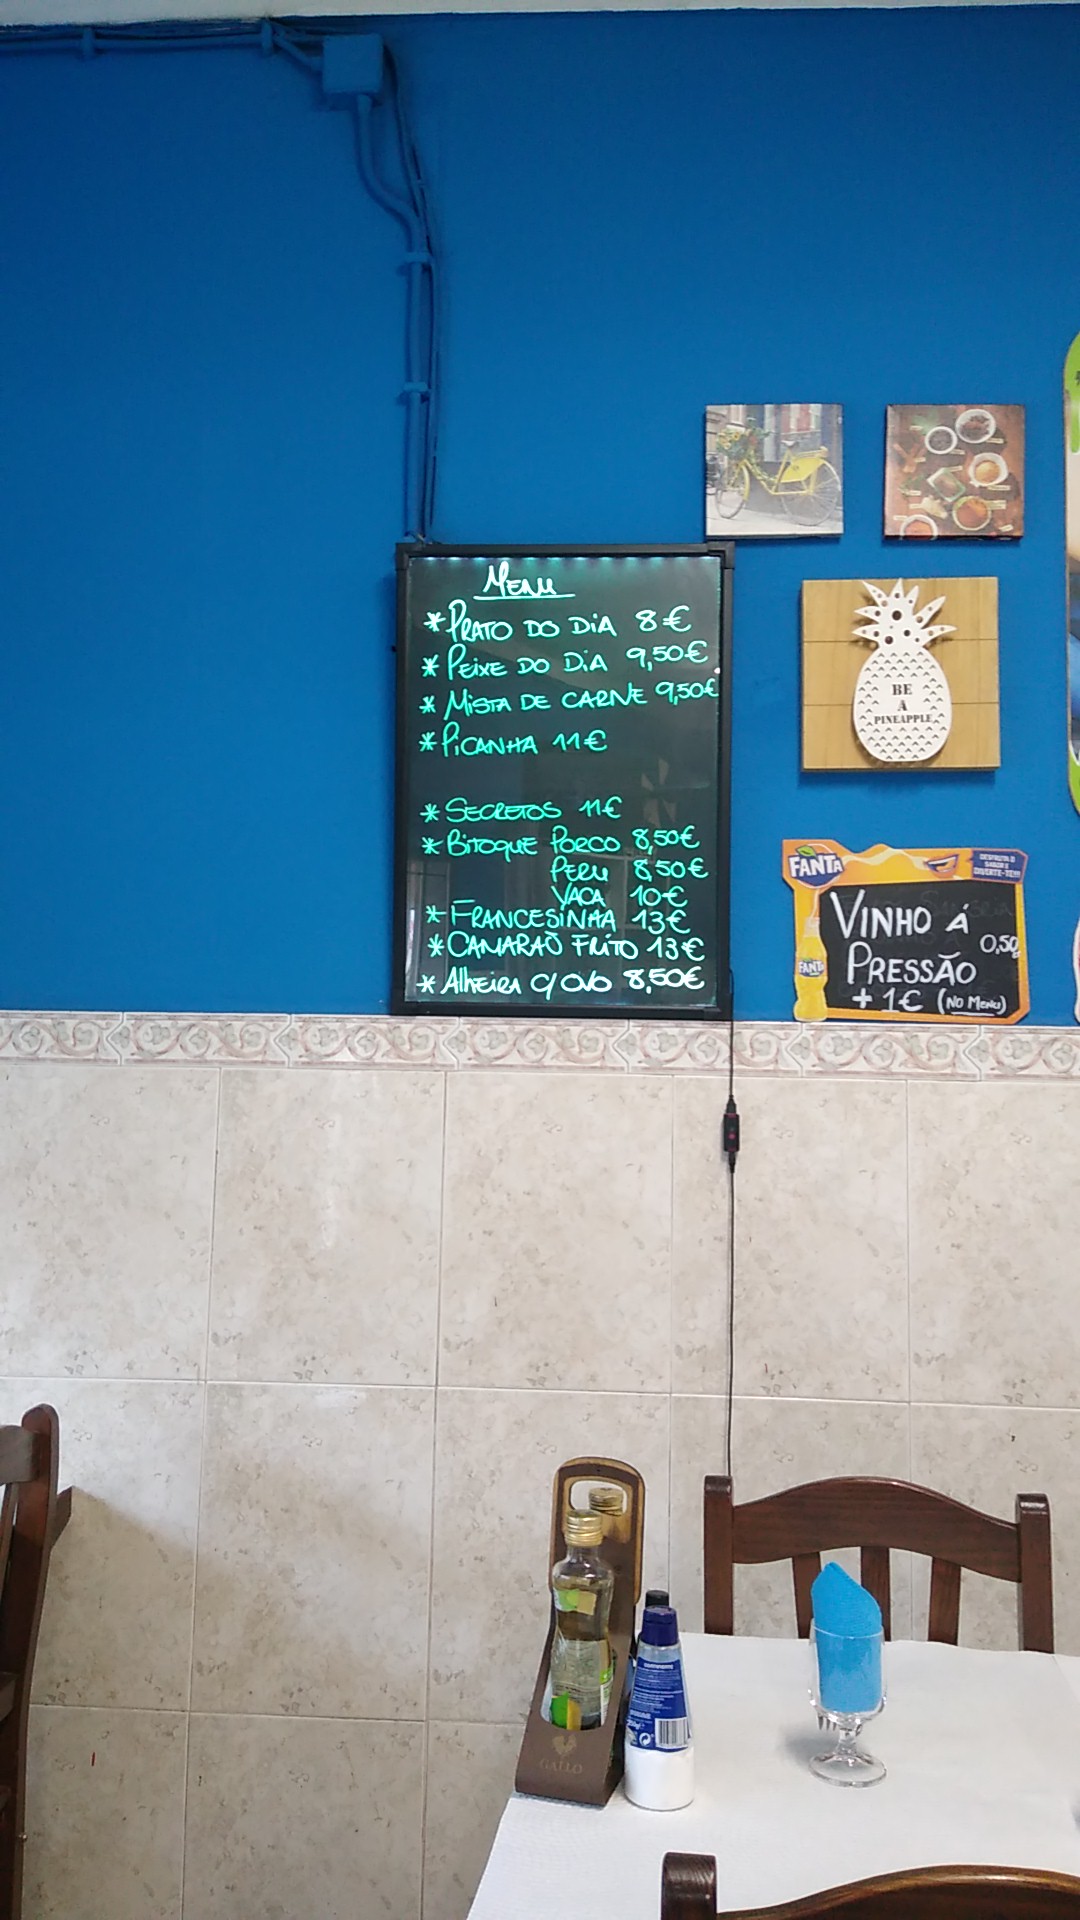 Menu
*Prato do Dia 8€
*Peixe do Dia 9,50€
*Mista de Carne 9,50€
*Picanha 11€
*Secretos 11€
*Bitoque Porco 8,50€
Peru 8,50€
Vaca 10€
*Francesinha 13€
*Camaraõ Frito 13€
*Alheira c/ ovo 8,50€
BE
A
PINEAPPLE
FANTA
DESFRUTA O
SABOR E
DIVERTE-TE!!!
Vinho á
0,50
Pressão
+ 1€ (no Menu)
FANTA
GALLO